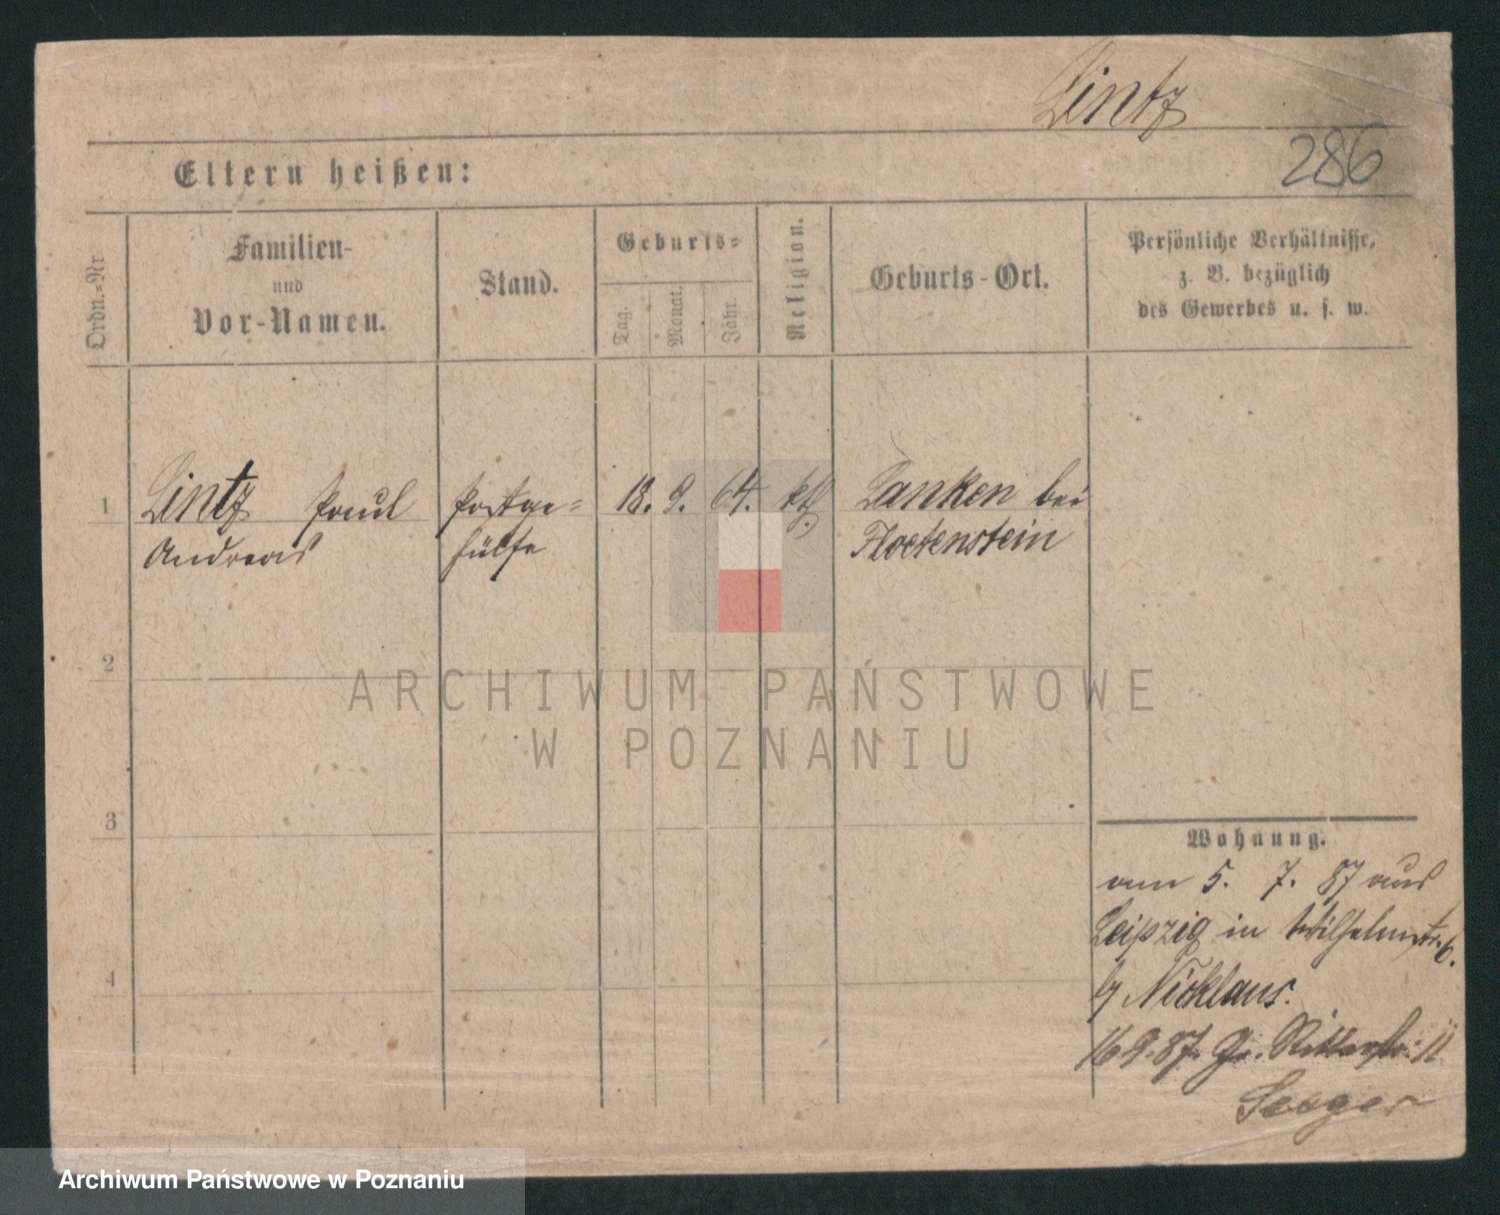 Lintz
286
Eltern heißen:
Ordn.-Nr
Familien-
und
Vor-Namen.
Stand.
Geburts-
Tag.
Monat.
Jahr.
Religion.
Geburts-Ort.
Persönliche Verhältnisse,
z. B. bezüglich
des Gewerbes u. s. w.
1 Lintz Paul Postge= 18. 9. 64. kth. Lanken bei
Andreas hülfe Floetenstein
2
3
4
Wohnung.
am 5. 7. 87 aus
Leipzig in Wilhelmstr. 6.
b/ Nicklaus.
16 9. 87. Gr. Ritterstr. 11
Seeger
ARCHIWUM PAŃSTWOWE
W POZNANIU
Archiwum Państwowe w Poznaniu